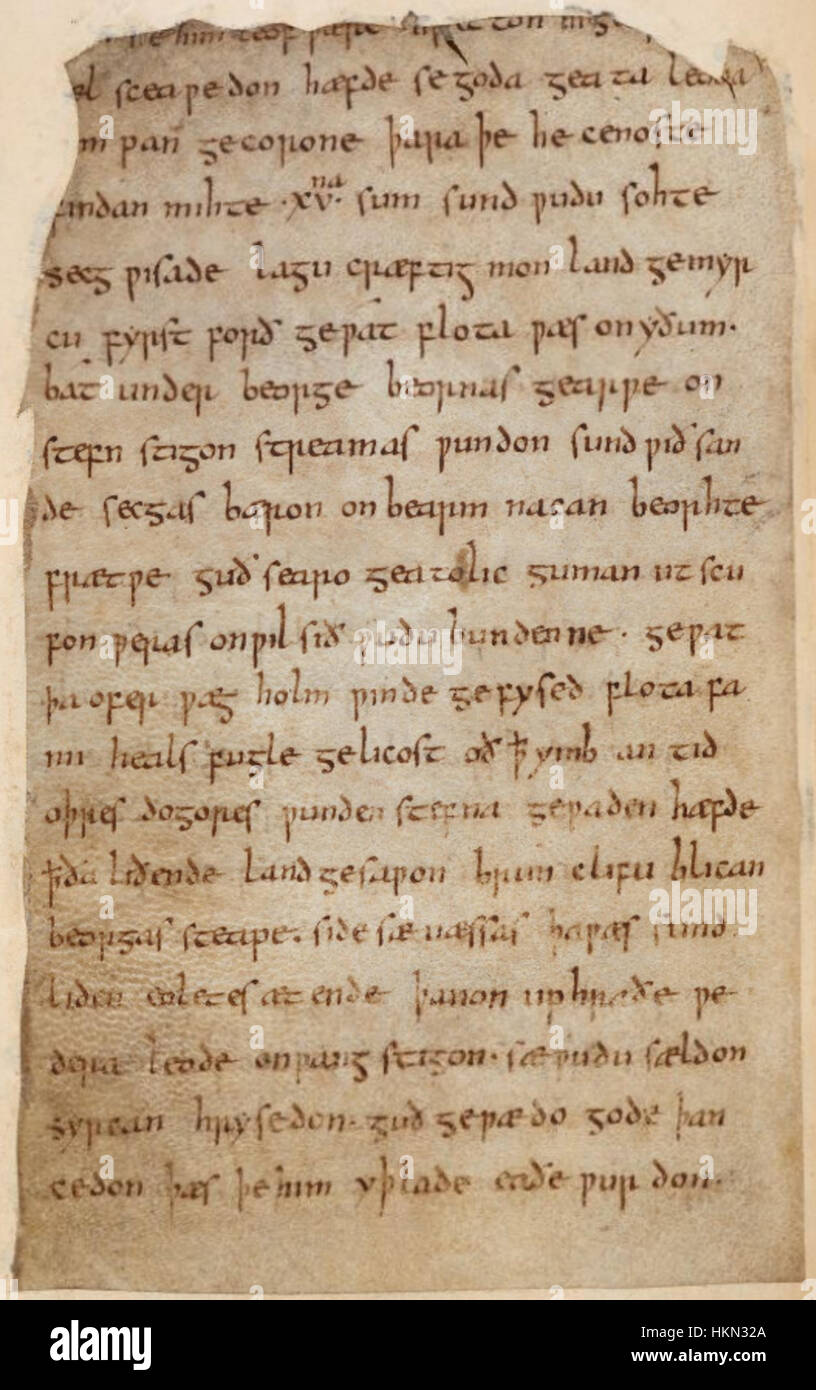 him leof ƿære
sceaƿedon hæfde se goda geata leoda
pan gecorone þara þe he cenoste
findan mihte ·xv·ⁿᵃ sum sund ƿudu sohte
secg ƿisade lagu cræftig mon land gemyr
cu fyrst forð geƿat flota ƿæs on yðum·
bat under beorge beornas gearƿe on
stefn stigon streamas ƿundon sund ƿið san
de secgas bæron on bearm nacan beorhte
frætƿe guð searo geatolic guman ut scu
fon ƿeras on ƿil sið ƿudu bundenne· geƿat
þa ofer ƿæg holm ƿinde gefysed flota fa
mi heals fugle gelicost oð ꝥ ymb an tid
oþres dogores ƿunden stefna geƿaden hæfde
ꝥ ða liðende land gesaƿon brim clifu blican
beorgas steape· side sænæssas þa ƿæs sund
liden eoletes æt ende þanon up hraðe ƿe
dera leode on ƿang stigon· sæƿudu sældon
syrcan hrysedon· guð geƿædo gode þan
cedon þæs þe him yþlade eaðe ƿurdon·
alamy
alamy
alamy
alamy
alamy
alamy stock photo
HKN32A
www.alamy.com